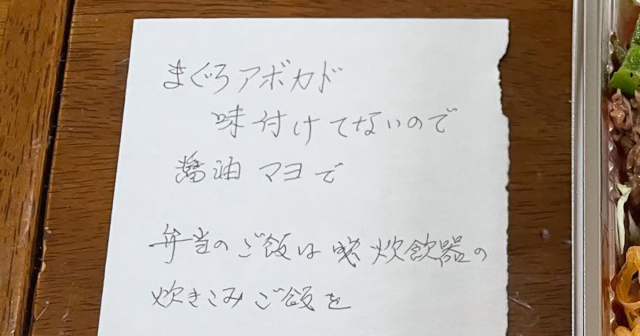 まぐろアボカド
味付けてないので
醤油マヨで
弁当のご飯は 炊飲器の
炊きこみご飯を